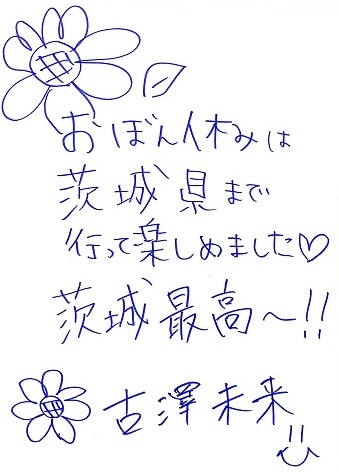 おぼん休みは
茨城県まで
行って楽しめました♡
茨城最高〜!!
古澤未来